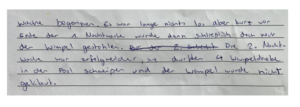 Wache begonnen. Es war lange nichts los, aber kurz vor
Ende der 1. Nachtwache wurde dann schließlich doch noch
der Wimpel gestohlen. Die 2. Nacht-
wache war erfolgreicher, sie durften 4 Wimpeldiebe
in den Pool schmeißen und der Wimpel wurde nicht
geklaut.